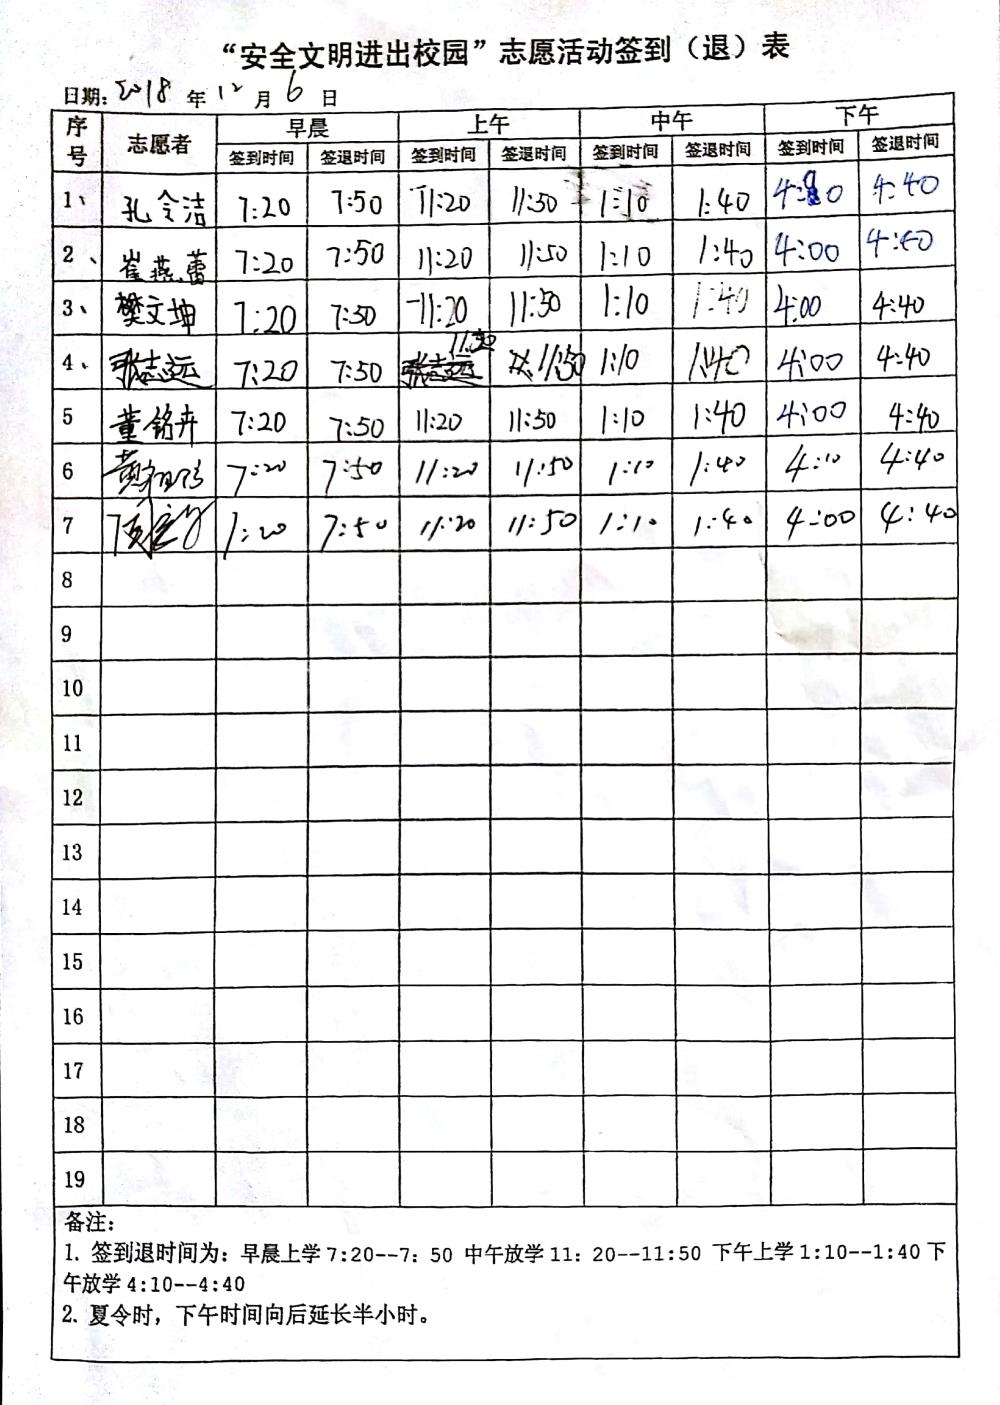 “安全文明进出校园”志愿活动签到（退）表
日期：2018 年 12 月 6 日
序号 志愿者 早晨 上午 中午 下午
签到时间 签退时间 签到时间 签退时间 签到时间 签退时间 签到时间 签退时间
1、 孔令洁 7:20 7:50 11:20 11:50 1:10 1:40 4:00 4:40
2、 崔燕蕾 7:20 7:50 11:20 11:50 1:10 1:40 4:00 4:40
3、 樊文坤 7:20 7:50 11:20 11:50 1:10 1:40 4:00 4:40
4、 张志远 7:20 7:50 张志远 11:50 1:10 1:40 4:00 4:40
5 董铭卉 7:20 7:50 11:20 11:50 1:10 1:40 4:00 4:40
6 7:20 7:50 11:20 11:50 1:10 1:40 4:10 4:40
7 1:20 7:50 11:20 11:50 1:10 1:40 4:00 4:40
8
9
10
11
12
13
14
15
16
17
18
19
备注：
1. 签到退时间为：早晨上学 7:20--7：50 中午放学 11：20--11:50 下午上学 1:10--1:40 下
午放学 4:10--4:40
2. 夏令时，下午时间向后延长半小时。